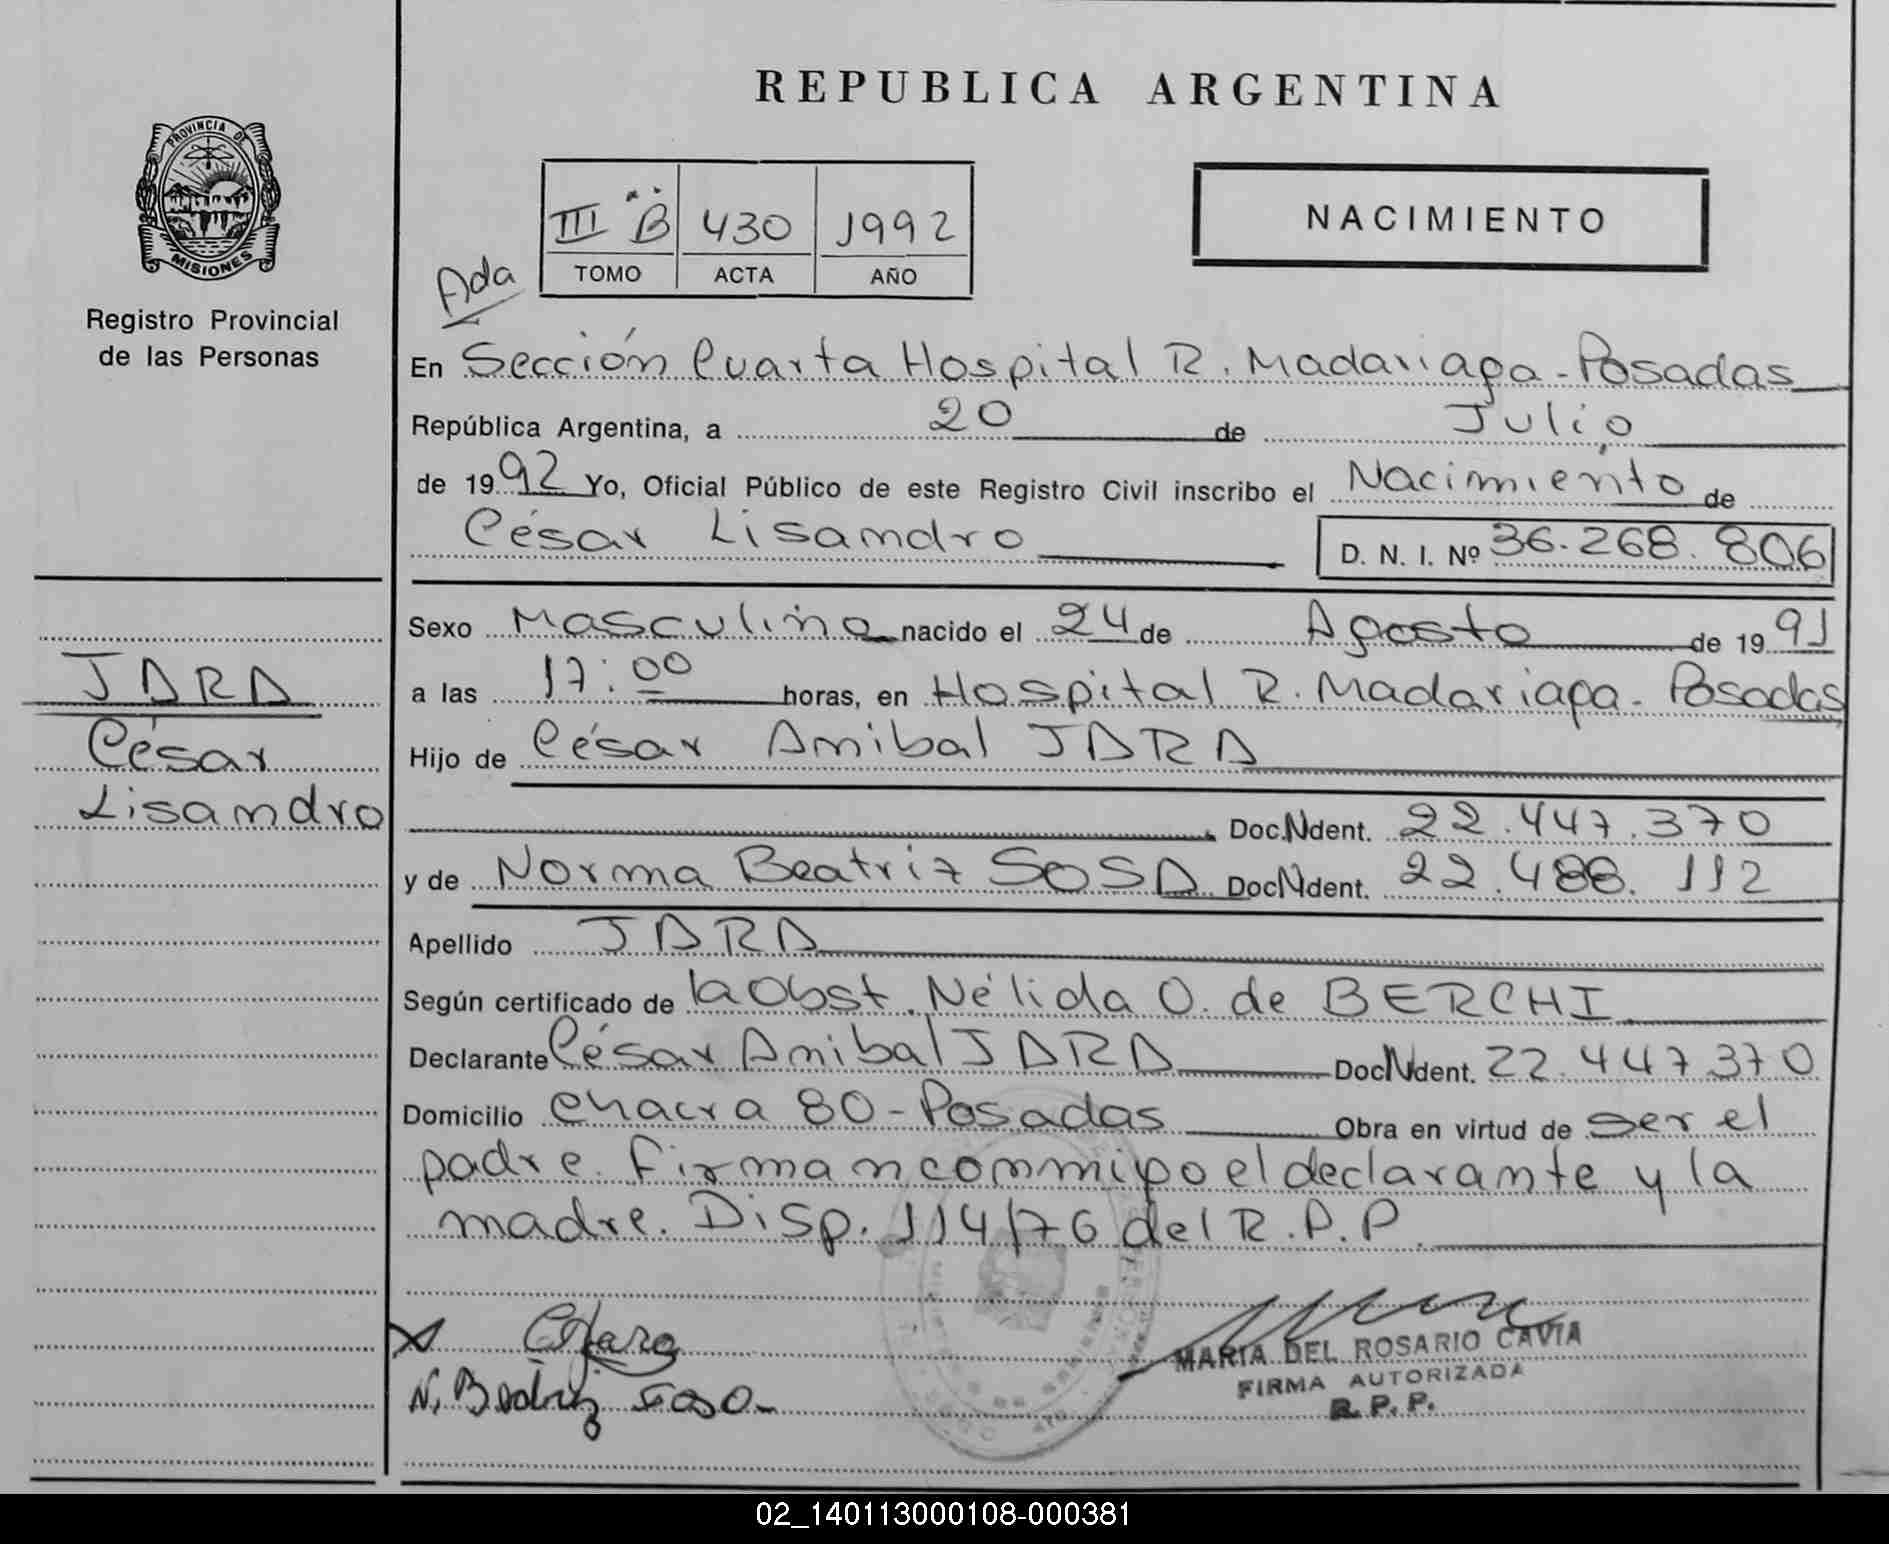 REPUBLICA ARGENTINA
PROVINCIA DE
MISIONES
Registro Provincial
de las Personas
III "B" 430 1992
TOMO ACTA AÑO
NACIMIENTO
Ada
En Sección Cuarta Hospital R. Madariaga - Posadas
República Argentina, a 20 de Julio
de 1992 Yo, Oficial Público de este Registro Civil inscribo el Nacimiento de
César Lisandro D. N. I. Nº 36.268.806
Sexo Masculino nacido el 24 de Agosto de 1991
a las 17:00 horas, en Hospital R. Madariaga - Posadas
Hijo de César Anibal JARA
Doc. Ndent. 22.447.370
y de Norma Beatriz SOSA Doc Ndent. 22.488.112
Apellido JARA
Según certificado de la Obst. Nélida O. de BERCHI
Declarante César Anibal JARA Doc Ndent. 22.447.370
Domicilio chacra 80 - Posadas Obra en virtud de ser el
padre. Firman conmigo el declarante y la
madre. Disp. 114/76 del R.P.P.
JARA
César
Lisandro
x CJara
N. Beatriz Sosa
MARIA DEL ROSARIO CAVIA
FIRMA AUTORIZADA
R. P. P.
02_140113000108-000381